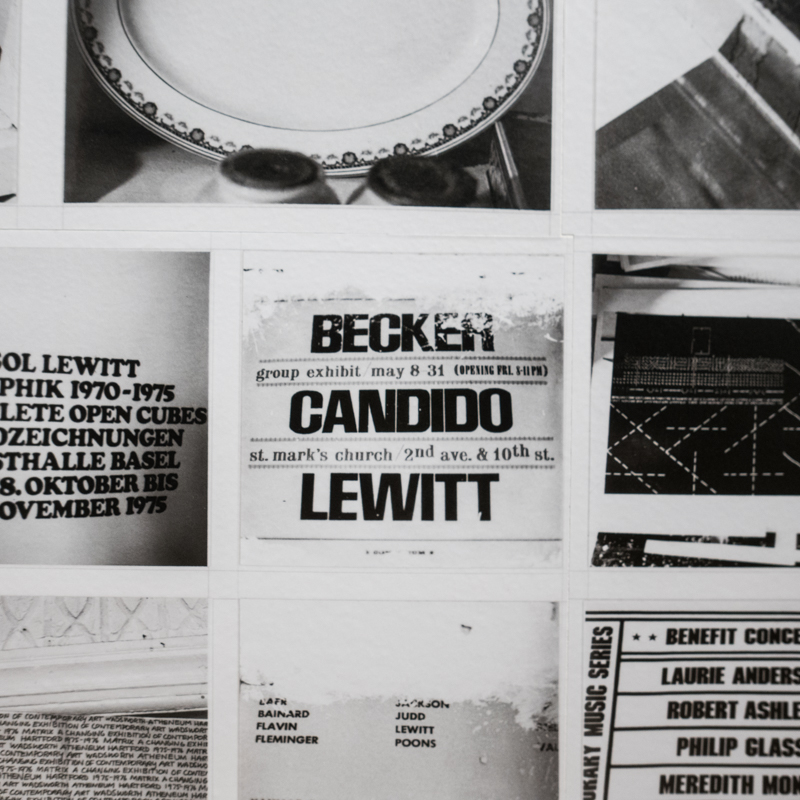 SOL LEWITT
PHIK 1970-1975
LETE OPEN CUBES
DZEICHNUNGEN
STHALLE BASEL
8. OKTOBER BIS
OVEMBER 1975
BECKER
group exhibit / may 8-31 (OPENING FRI. 8-11 PM)
CANDIDO
st. mark's church / 2nd ave. & 10th st.
LEWITT
BAINARD
FLAVIN
FLEMINGER
JACKSON
JUDD
LEWITT
POONS
ORARY MUSIC SERIES
★ ★ BENEFIT CONCE
LAURIE ANDERS
ROBERT ASHLE
PHILIP GLASS
MEREDITH MON
ON OF CONTEMPORARY ART WADSWORTH ATHENEUM HAR